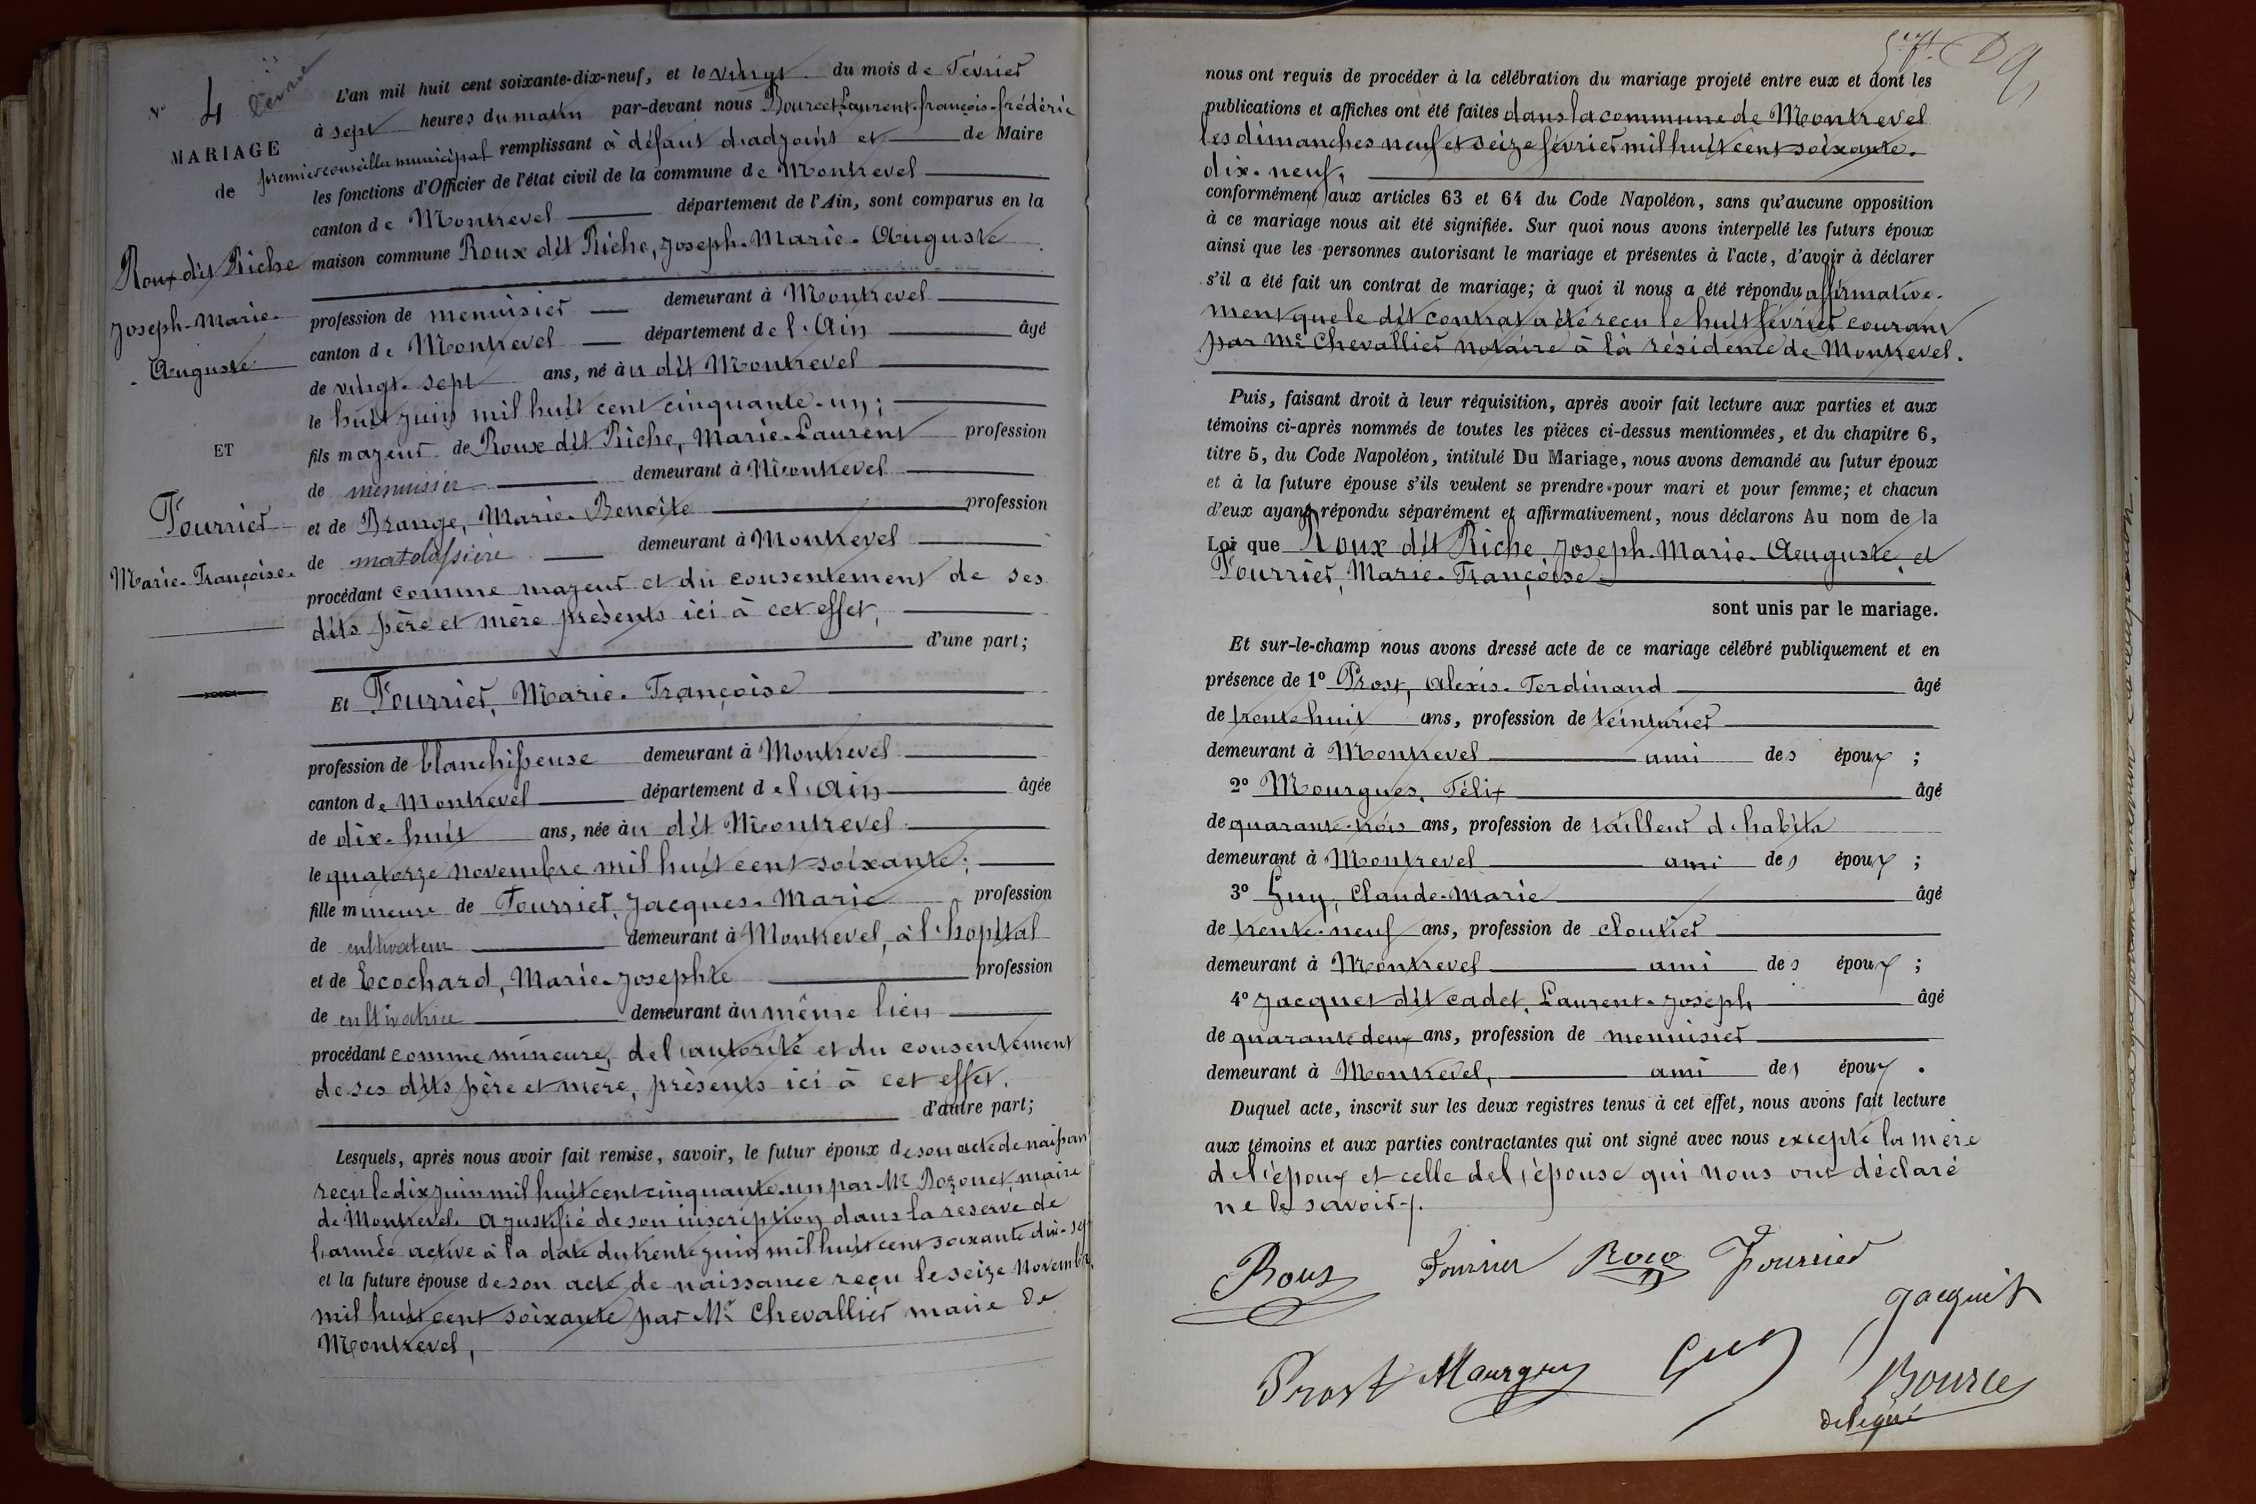 N° 4
MARIAGE
de
Roux dit Riche
Joseph-Marie-
Auguste
ET
Fourrier
Marie-Françoise.
L'an mil huit cent soixante-dix-neuf, et le vingt du mois de Février
à sept heures du matin par-devant nous Bourcet, Laurent-françois-frédéric
premier conseiller municipal remplissant à défaut d'adjoint et de Maire
les fonctions d'Officier de l'état civil de la commune de Montrevel
canton de Montrevel département de l'Ain, sont comparus en la
maison commune Roux dit Riche, Joseph-Marie-Auguste
profession de menuisier demeurant à Montrevel
canton de Montrevel département de l'Ain âgé
de vingt-sept ans, né àu dit Montrevel
le huit juin mil huit cent cinquante-un;
fils majeur de Roux dit Riche, Marie-Laurent profession
de menuisier demeurant à Montrevel
et de Brange, Marie-Benoîte profession
de matelassière demeurant à Montrevel
procédant comme majeur et du consentement de ses
dits père et mère présents ici à cet effet,
d'une part;
Et Fourrier, Marie-Françoise
profession de blanchisseuse demeurant à Montrevel
canton de Montrevel département de l'Ain âgée
de dix-huit ans, née àu dit Montrevel
le quatorze novembre mil huit cent soixante;
fille mineure de Fourrier, Jacques-Marie profession
de cultivateur demeurant à Montrevel, à l'hopital
et de Ecochard, Marie-Josephte profession
de cultivatrice demeurant àu même lieu
procédant comme mineure, de l'autorité et du consentement
de ses dits père et mère, présents ici à cet effet.
d'autre part;
Lesquels, après nous avoir fait remise, savoir, le futur époux de son acte de naissan
reçu le dix juin mil huit cent cinquante-un par Mr Bozonet, maire
de Montrevel. a justifié de son inscription dans la reserve de
l'armée active à la date du trente juin mil huit cent soixante dix-sep
et la future épouse de son acte de naissance reçu le seize Novembre
mil huit cent soixante par Mr Chevallier maire de
Montrevel,
nous ont requis de procéder à la célébration du mariage projeté entre eux et dont les
publications et affiches ont été faites dans la commune de Montrevel
les dimanches neuf et seize février mil huit cent soixante-
dix-neuf,
conformément aux articles 63 et 64 du Code Napoléon, sans qu'aucune opposition
à ce mariage nous ait été signifiée. Sur quoi nous avons interpellé les futurs époux
ainsi que les personnes autorisant le mariage et présentes à l'acte, d'avoir à déclarer
s'il a été fait un contrat de mariage; à quoi il nous a été répondu affirmative-
ment que le dit contrat a été reçu le huit février courant
par Me Chevallier notaire à la résidence de Montrevel.
Puis, faisant droit à leur réquisition, après avoir fait lecture aux parties et aux
témoins ci-après nommés de toutes les pièces ci-dessus mentionnées, et du chapitre 6,
titre 5, du Code Napoléon, intitulé Du Mariage, nous avons demandé au futur époux
et à la future épouse s'ils veulent se prendre pour mari et pour femme; et chacun
d'eux ayant répondu séparément et affirmativement, nous déclarons Au nom de la
Loi que Roux dit Riche, Joseph-Marie-Auguste, et
Fourrier, Marie-Françoise
sont unis par le mariage.
Et sur-le-champ nous avons dressé acte de ce mariage célébré publiquement et en
présence de 1° Prost, Alexis-Ferdinand âgé
de trente huit ans, profession de teinturier
demeurant à Montrevel ami des époux;
2° Mourgues, Félix âgé
de quarante-trois ans, profession de tailleur d'habits
demeurant à Montrevel ami des époux;
3° Guy, Claude-Marie âgé
de trente-neuf ans, profession de cloutier
demeurant à Montrevel ami des époux;
4° Jacquet dit cadet, Laurent-Joseph âgé
de quarante deux ans, profession de menuisier
demeurant à Montrevel, ami des époux.
Duquel acte, inscrit sur les deux registres tenus à cet effet, nous avons fait lecture
aux témoins et aux parties contractantes qui ont signé avec nous excepté la mère
de l'époux et celle de l'épouse qui nous ont déclaré
ne le savoir.
Roux Fourrier Roux Fourrier
Jacquet
Prost Mourgues Guy
Bourcet
délégué